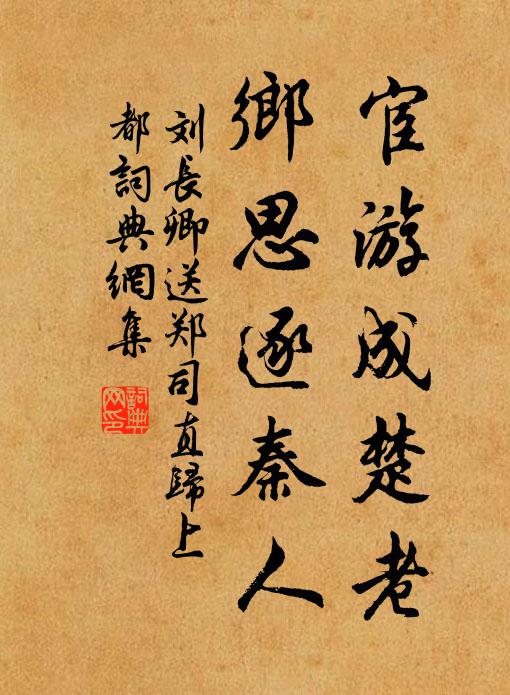 宦游成楚老
鄉思逐秦人
刘長卿送郑司直歸上
都詞典網集
詞典网印